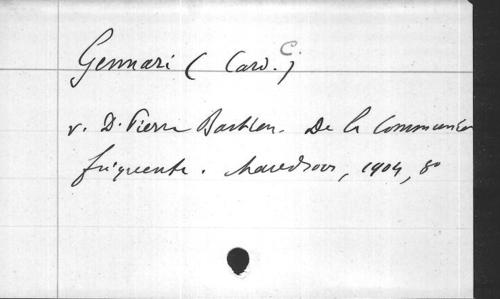 Gennari (Card. C.)
v. D. Pierre Bastien. De la Communion
fréquente. Maredsous, 1904, 8o